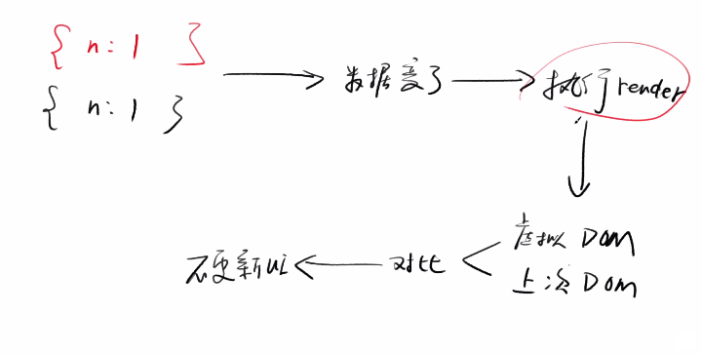 { n: 1 }
{ n: 1 }
数据变了
执行render
虚拟 DOM
上次 DOM
对比
不更新ui